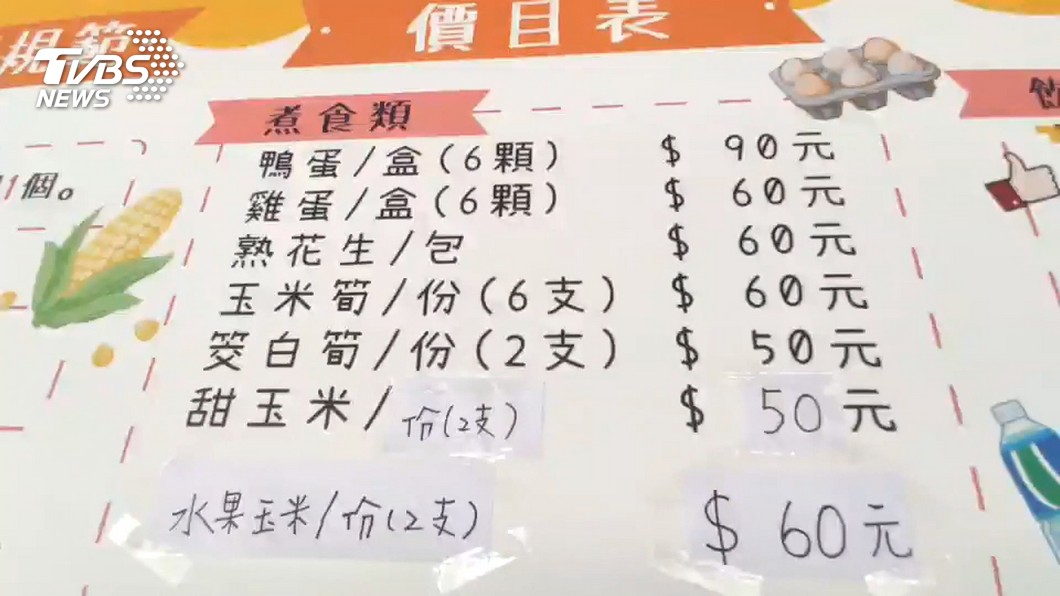 價目表
規範
TVBS
NEWS
煮食類
鴨蛋/盒(6顆) $ 90元
雞蛋/盒(6顆) $ 60元
熟花生/包 $ 60元
玉米筍/份(6支) $ 60元
筊白筍/份(2支) $ 50元
甜玉米/份(2支) $ 50元
水果玉米/份(2支) $ 60元
1個。